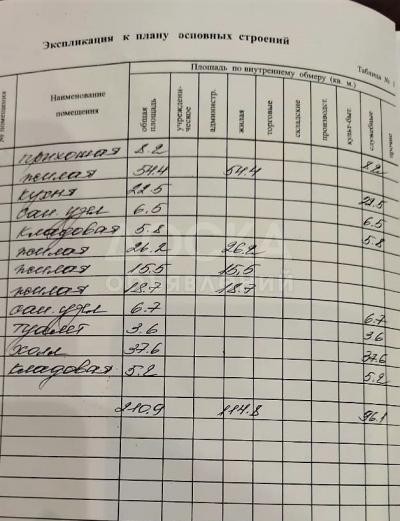 Экспликация к плану основных строений
Таблица № 1
№ помещения
Наименование помещения
Площадь по внутреннему обмеру (кв. м.)
общая площадь
учрежденческое
администр.
жилая
торговые
складские
производст.
культ-быт.
служебные
прочие
прихожая 8.2 8.2
жилая 54.4 54.4
кухня 22.5 22.5
сан. узел 6.5 6.5
кладовая 5.8 5.8
жилая 26.2 26.2
жилая 15.5 15,5
жилая 18.7 18.7
сан. узел 6.7 6.7
туалет 3.6 3.6
холл 37.6 37.6
кладовая 5.2 5.2
210.9 114.8 96.1
ДОСКА
ОБЪЯВЛЕНИЙ